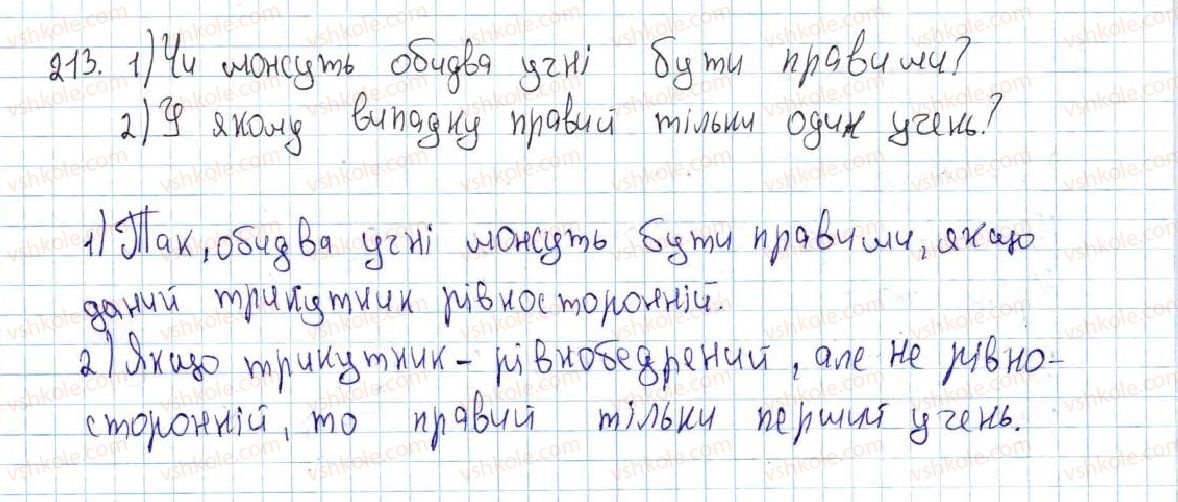 213. 1) Чи можуть обидва учні бути правими?
2) У якому випадку правий тільки один учень?
1) Так, обидва учні можуть бути правими, якщо
даний трикутник рівносторонній.
2) Якщо трикутник – рівнобедрений, але не рівно-
сторонній, то правий тільки перший учень.